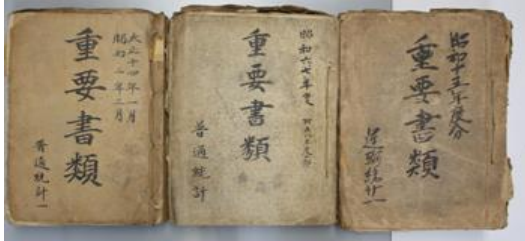 大正十四年一月
昭和二年三月
重要書類
普通統計一
昭和六七年度
重要書類
普通統計
昭和十五年度分
重要書類
普通統計一